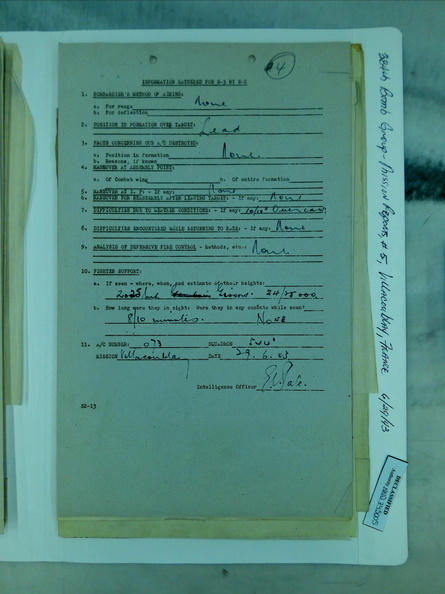 #4
INFORMATION GATHERED FOR S-3 BY S-2
1. BOMBARDIER'S METHOD OF AIMING:
a. For range None
b. For deflection
2. POSITION IN FORMATION OVER TARGET:
Lead
3. FACTS CONCERNING OUR A/C DESTROYED:
a. Position in formation None
b. Reasons, if known
4. MANEUVER AT ASSEMBLY POINT:
a. Of Combat wing b. Of entire formation
5. MANEUVER AT I. P: - If any: None
6. MANEUVER FOR REASSEMBLY AFTER LEAVING TARGET: - If any: None
7. DIFFICULTIES DUE TO WEATHER CONDITIONS: - If any: 10/10 Overcast
8. DIFFICULTIES ENCOUNTERED WHILE RETURNING TO BASE: - If any: None
9. ANALYSIS OF DEFENSIVE FIRE CONTROL - Methods, etc.: None
10. FIGHTER SUPPORT:
a. If seen - where, when, and estimate of their heights:
24/25000
b. How long were they in sight: Were they in any combats while seen:
8/10 minutes. NONE
11. A/C NUMBER: 073 SQUADRON 544
MISSION Villacoublay DATE 29.6.43
Intelligence Officer
S2-13
384th Bomb Group - Mission Reports, #5, Villacoublay, France 6/29/43
DECLASSIFIED
Authority